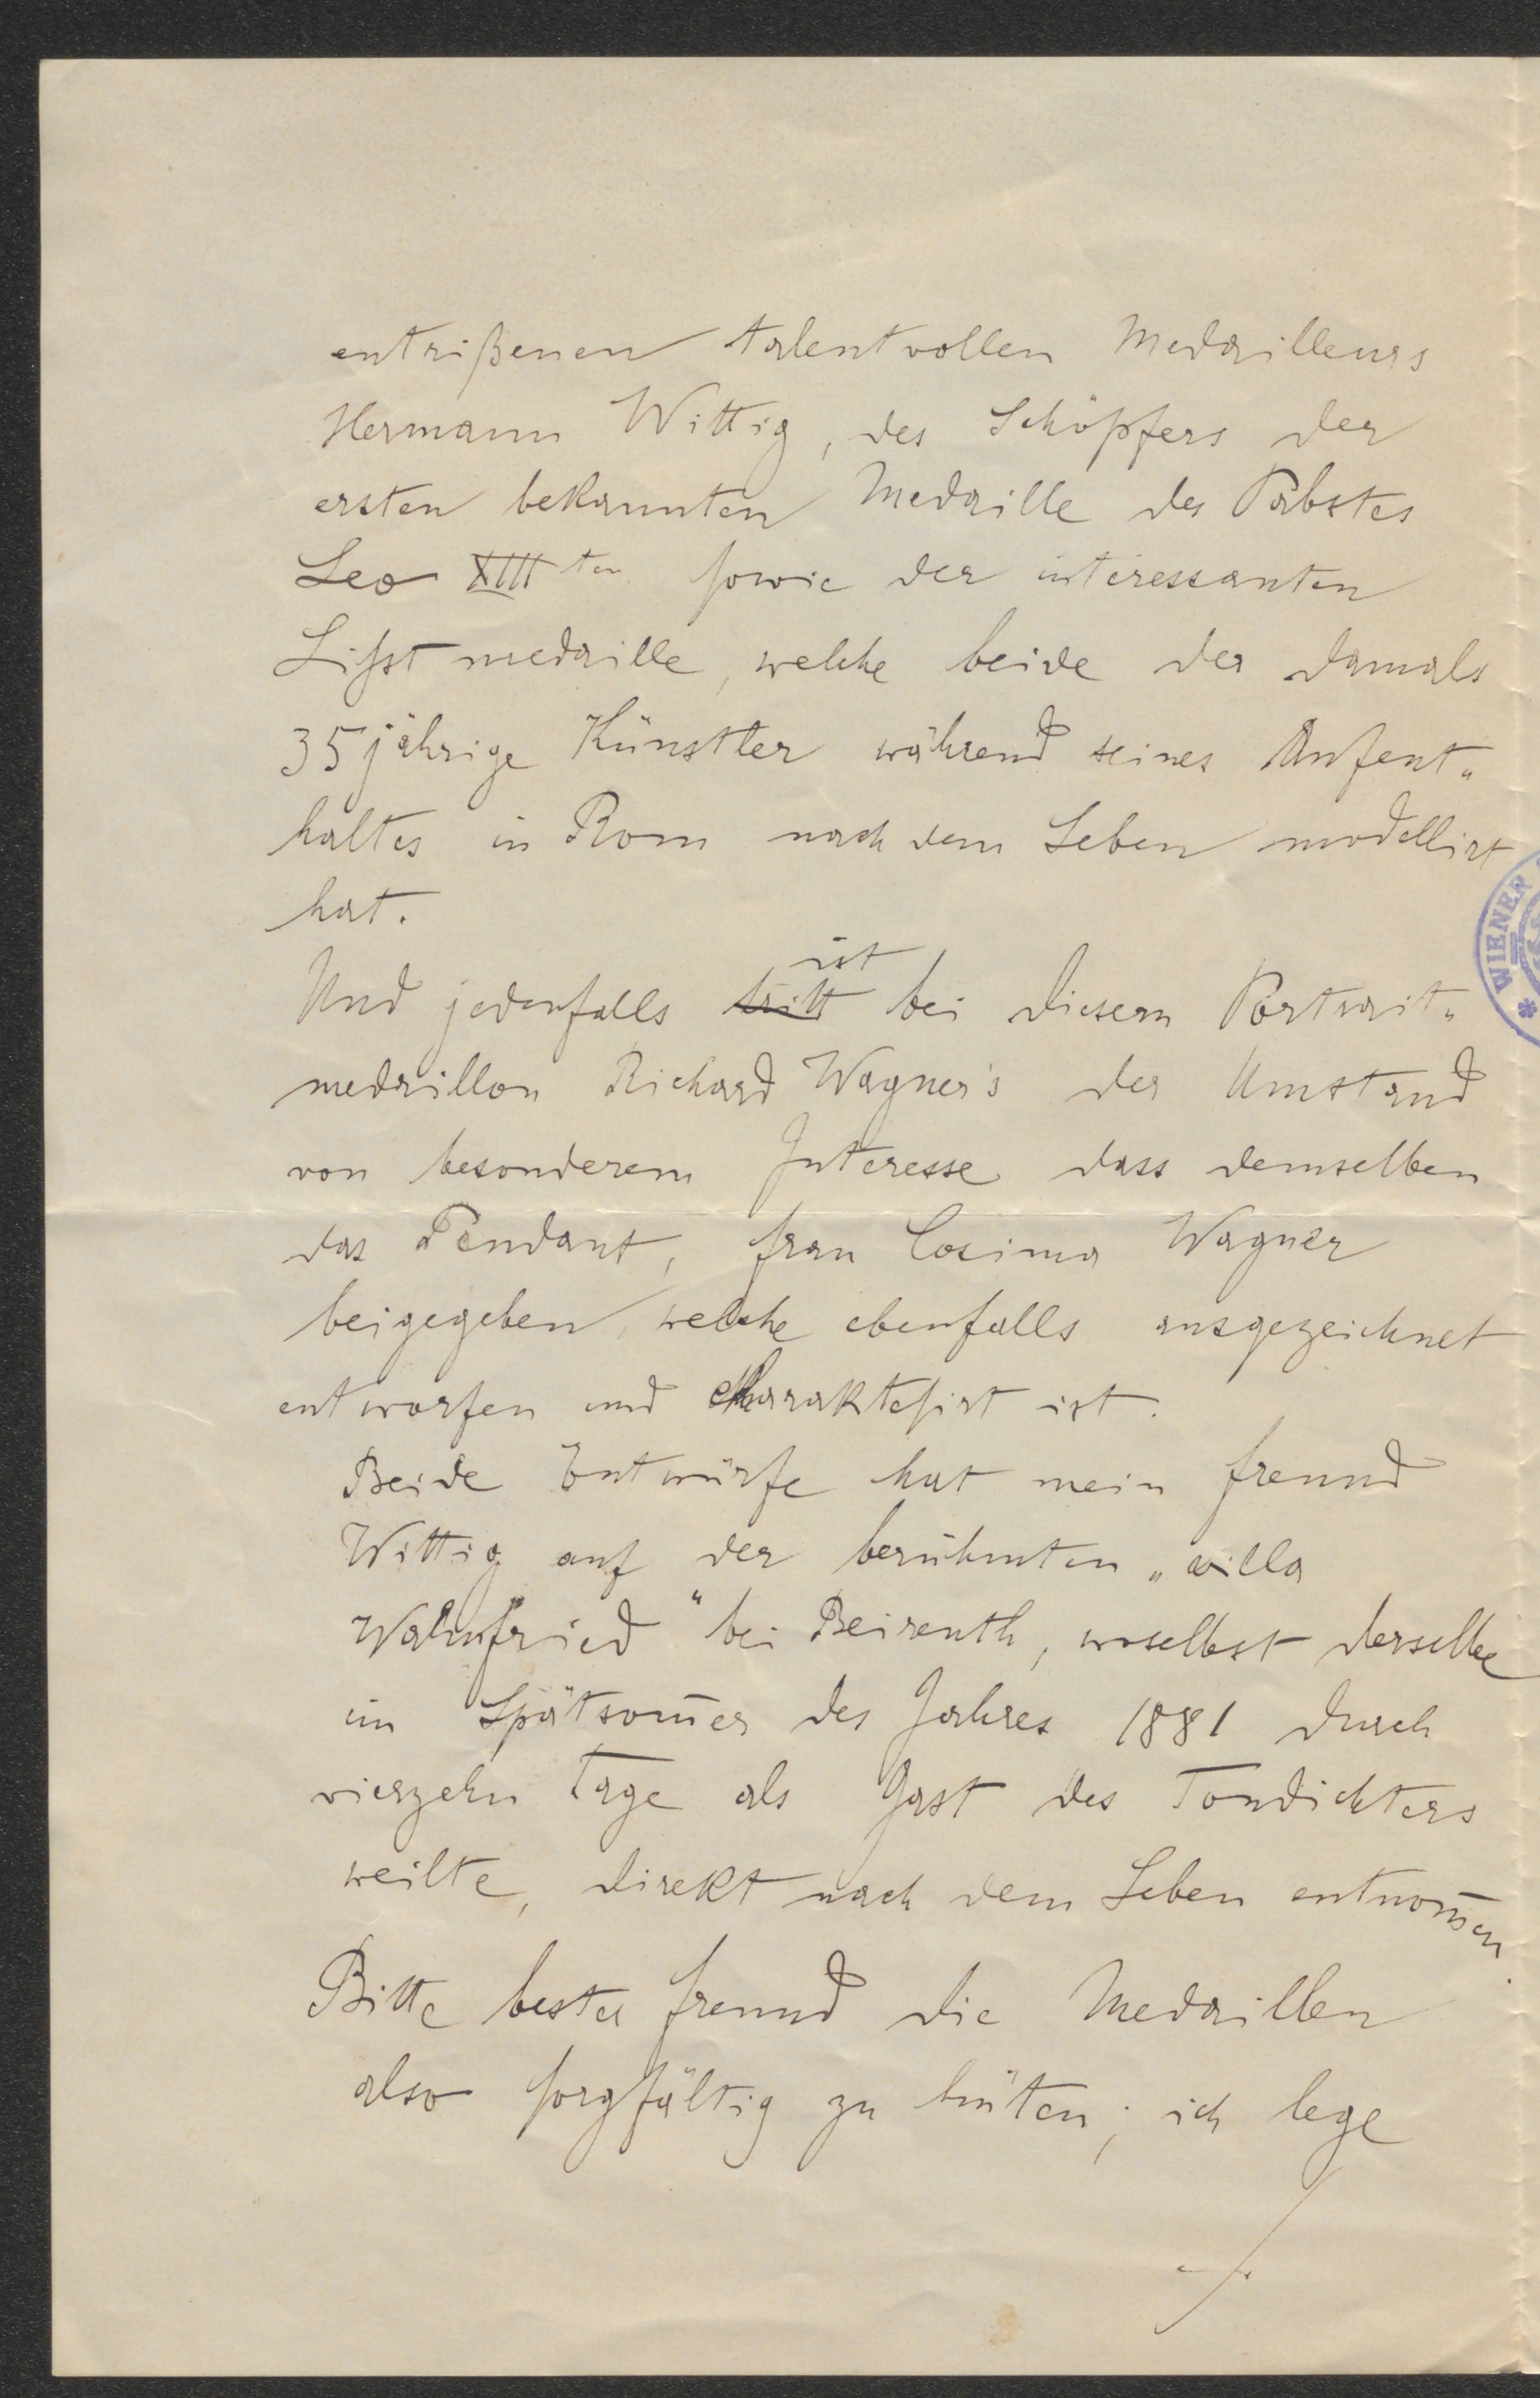 entrißenen talentvollen Medailleurs
Hermann Wittig, des Schöpfers der
ersten bekannten Medaille des Pabstes
Leo XIII ten sowie der interessanten
Lisst medaille, welche beide der damals
35 jährige Künstler während seines Aufent„
haltes in Rom nach dem Leben modellirt
hat.
ist
Und jedenfalls tritt bei diesem Portrait„
medaillon Richard Wagner's der Umstand
von besonderem Interesse dass demselben
das Pendant, frau Cosima Wagner
beigegeben, welche ebenfalls ausgezeichnet
entworfen und charakterisirt ist.
Beide Entwürfe hat mein freund
Wittig auf der berühmten „villa
Wahnfried“ bei Beireuth, woselbst derselbe
im Spätsom̄er des Jahres 1881 durch
vierzehn Tage als Gast des Tondichters
weilte, direkt nach dem Leben entnom̄en.
Bitte bester freund die Medaillen
also sorgfältig zu hüten; ich lege
WIENER